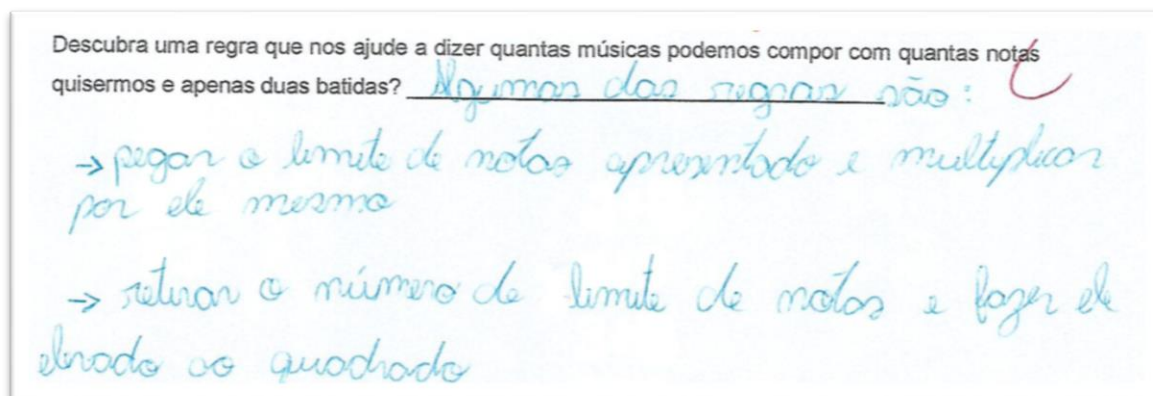 Descubra uma regra que nos ajude a dizer quantas músicas podemos compor com quantas notas
quisermos e apenas duas batidas? Algumas das regras são:
→ pegar o limite de notas apresentado e multiplicar
por ele mesmo
→ retirar o número de limite de notas e fazer ele
elevado ao quadrado